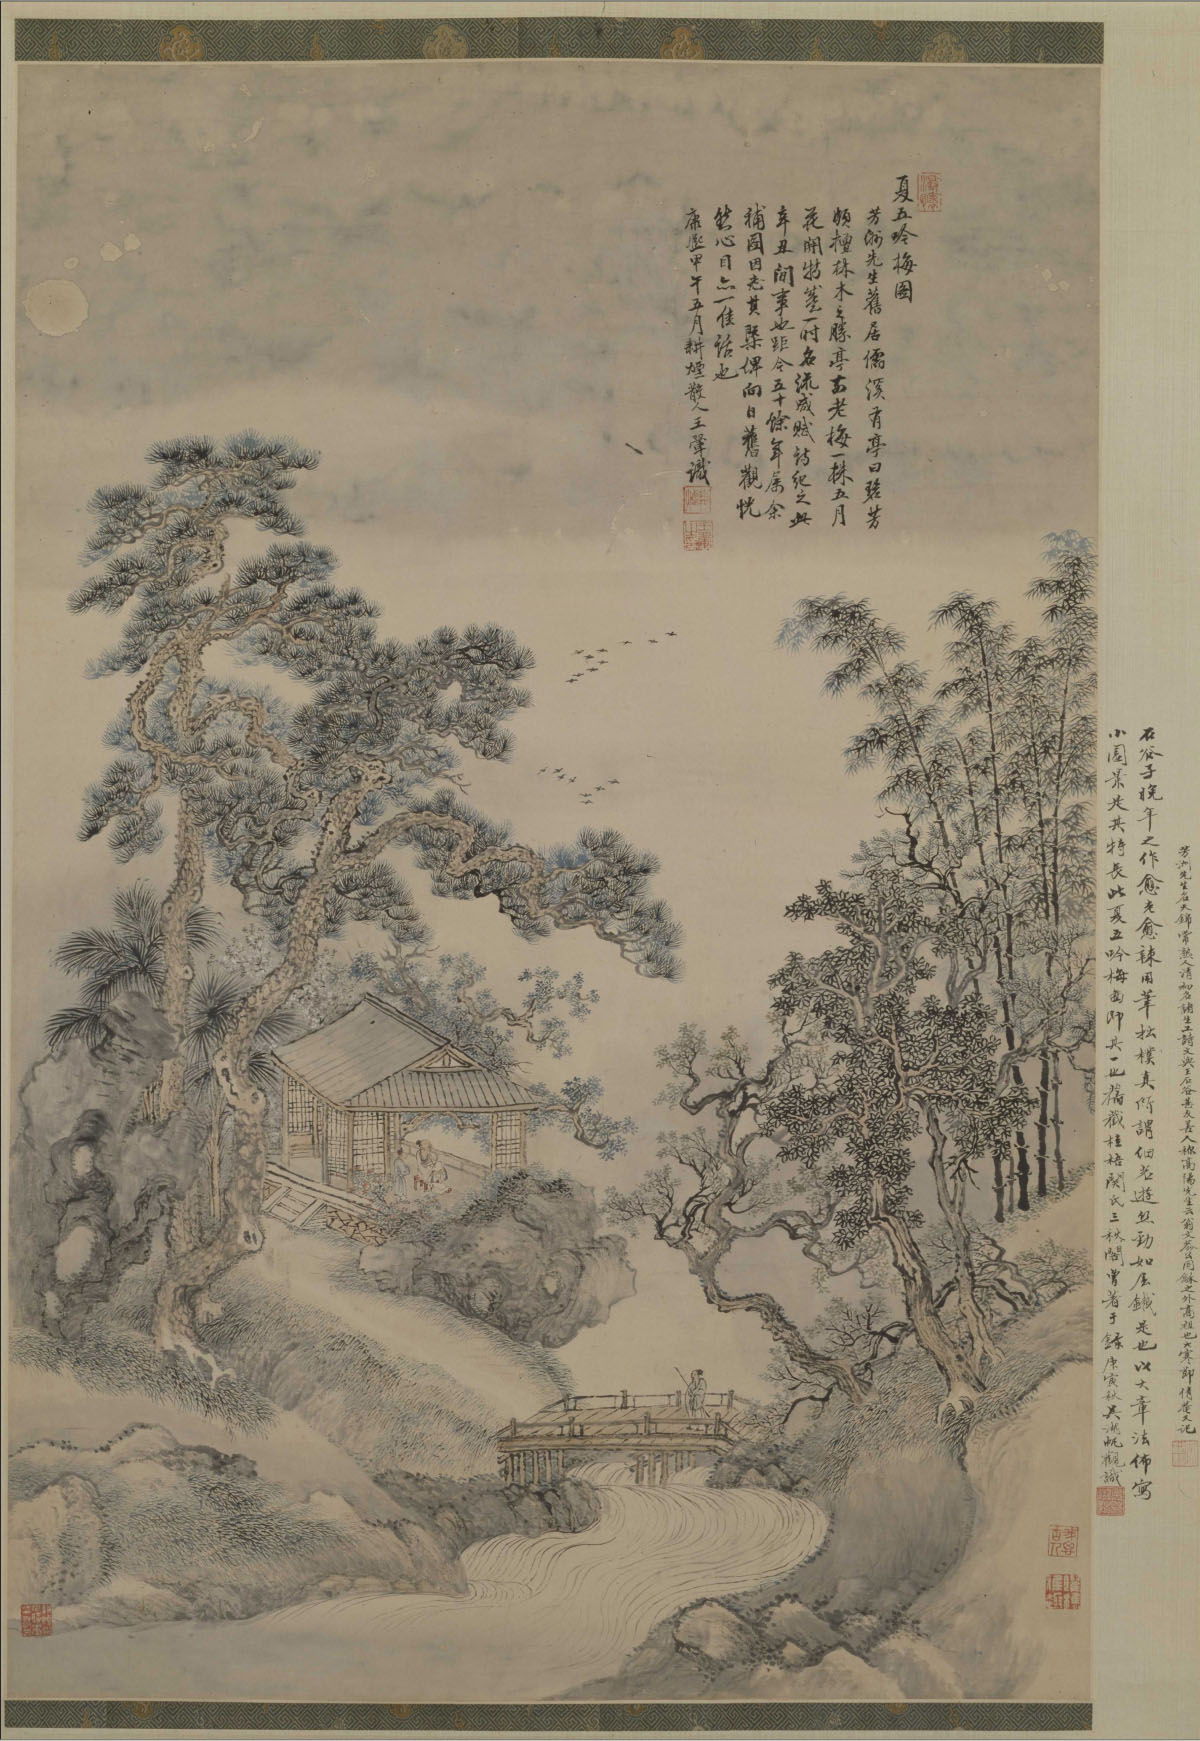 夏五吟梅圖
芳洲先生舊居儒溪有亭曰碧芳
頗擅林木之勝亭前老梅一株五月
花開特盛一時名流咸賦詩紀之此
辛丑間事也距今五十餘年屬余
補圖因志其槩俾向日舊觀恍
然心目亦一佳話也
康熙甲午五月耕煙散人王翬識
石谷子晚年之作愈老愈辣用筆松樸真所謂細若遊絲勁如屈鐵是也以大章法佈寫
小園景是其特長此夏五吟梅圖即其一也舊藏桂梧閔氏三秋閣曾著于錄庚寅秋吳湖帆觀識
芳洲先生名天錦常熟人清初名諸生工詩文與王石谷善